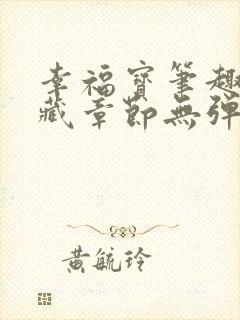 幸福寶筆趣
藏章節無彈
黃毓玲